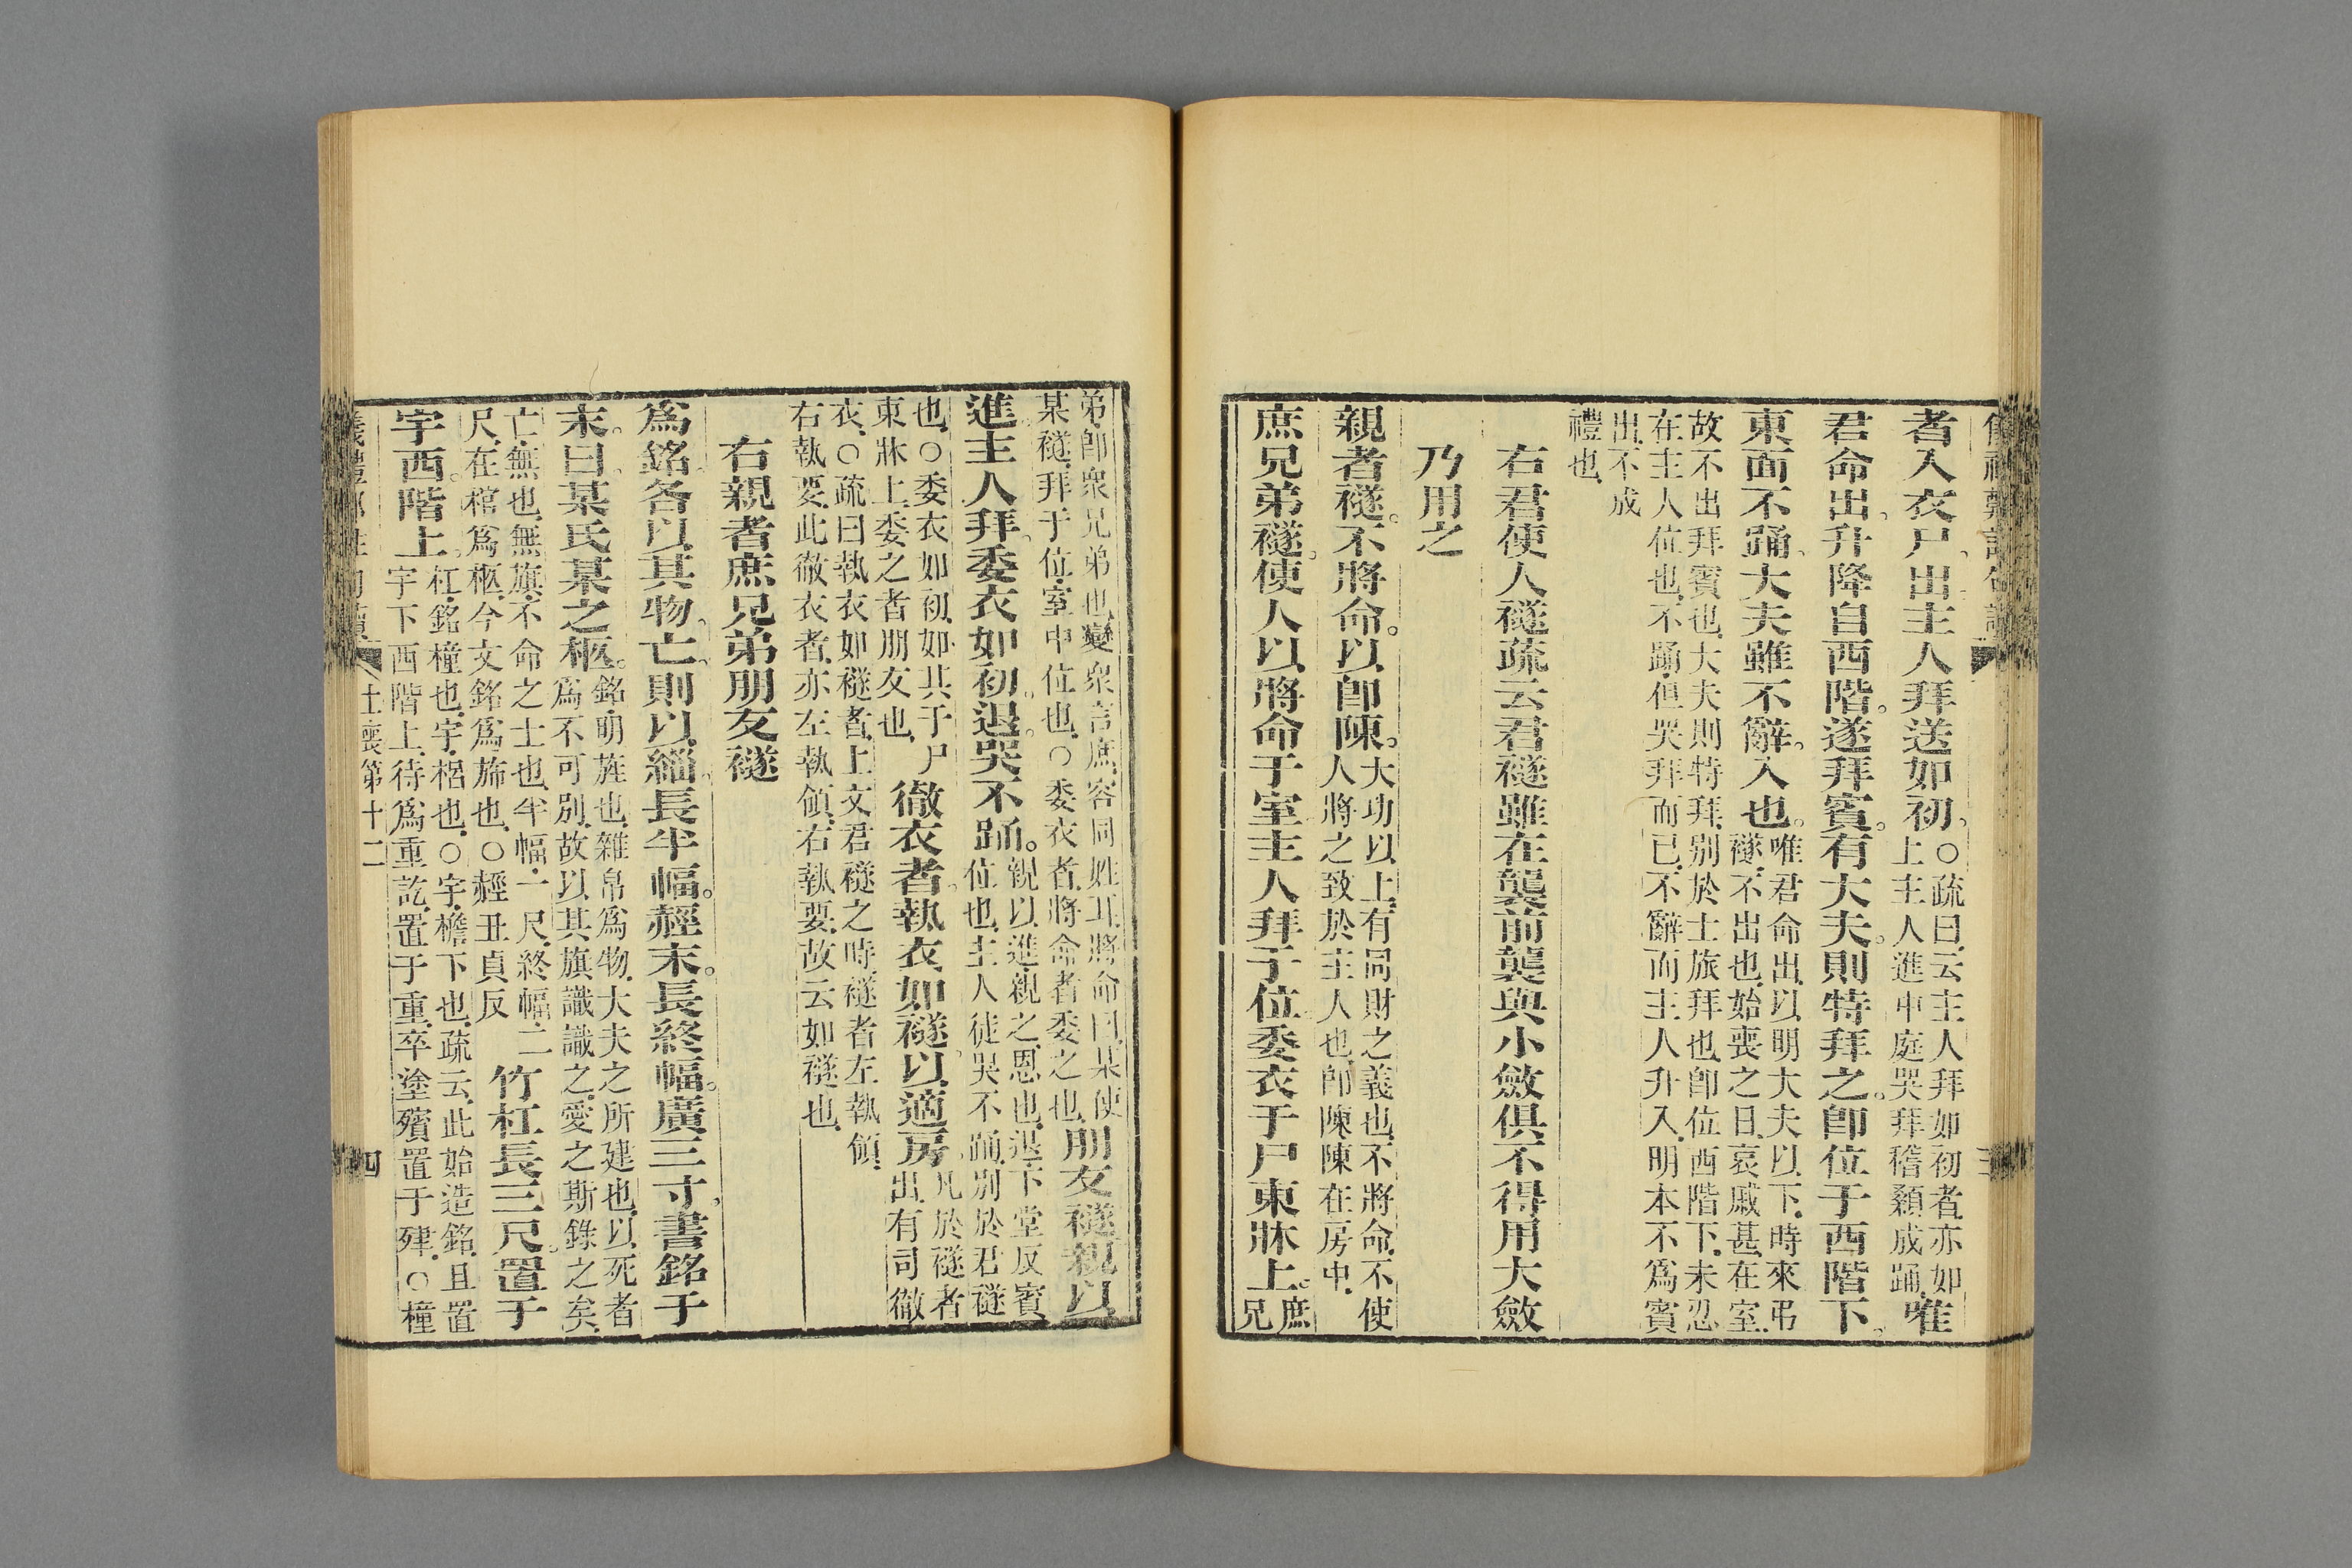 儀禮鄭註句讀 三
者入衣尸、出主人拜送如初。○疏曰、云主人拜如初者、亦如上主人進中庭哭拜稽顙成踊、唯
君命出、升降自西階。遂拜賓。有大夫。則特拜之。卽位于西階下。
東面不踊、大夫雖不辭。入也。唯君命出、以明大夫以下、時來弔襚、不出也、始喪之日、哀戚甚、在室、
故不出拜賓也、大夫則特拜、別於士旅拜也、卽位西階下、未忍在主人位也、不踊、但哭拜而已、不辭而主人升入、明本不爲賓
出、不成禮也、
右君使人襚疏云君襚雖在襲前襲與小斂俱不得用大斂
乃用之
親者襚。不將命。以卽陳。大功以上、有同財之義也、不將命、不使人將之致於主人也、卽陳、陳在房中、
庶兄弟襚。使人以將命于室主人拜于位委衣于尸東牀上。庶兄
弟、卽衆兄弟也、變衆言庶、容同姓耳、將命曰、某使某襚、拜于位、室中位也、○委衣者、將命者委之也、朋友襚親以
進。主人拜。委衣如初。退。哭不踊。親以進、親之恩也、退、下堂反賓位也、主人徒哭不踊、別於君襚
也、○委衣如初、如其于尸東牀上、委之者朋友也、徹衣者。執衣如襚。以適房。凡於襚者出、有司徹
衣、○疏曰、執衣如襚者、上文君襚之時、襚者左執領、右執要、此徹衣者、亦左執領、右執要、故云如襚也、
右親者庶兄弟朋友襚
爲銘。各以其物。亡則以緇。長半幅。䞓末。長終幅。廣三寸。書銘于
末。曰某氏某之柩。銘、明旌也、雜帛爲物、大夫之所建也、以死者爲不可別、故以其旗識識之、愛之斯錄之矣、
亡、無也、無旗、不命之士也、半幅、一尺、終幅、二尺、在棺爲柩、今文銘爲旆也、○䞓丑貞反 竹杠長三尺。置于
宇西。階上。杠、銘橦也、宇、梠也、○宇、檐下也、疏云、此始造銘、且置宇下西階上、待爲重訖、置于重、卒塗殯、置于肂、○橦
士喪第十二 四